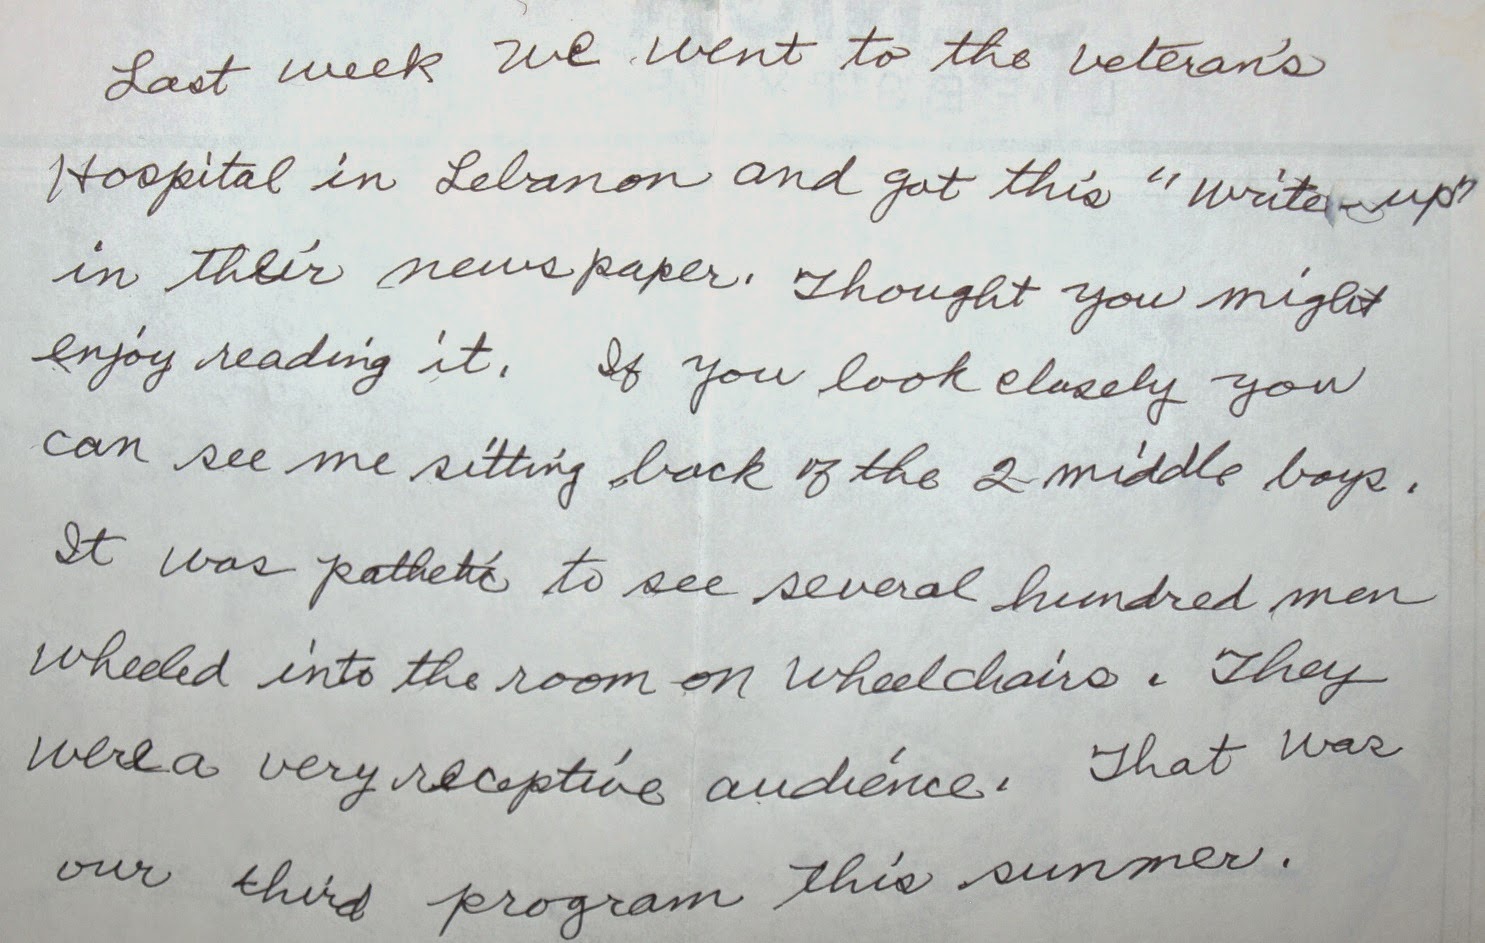 Last week we went to the veteran's
Hospital in Lebanon and got this "write-up"
in their newspaper. Thought you might
enjoy reading it. If you look closely you
can see me sitting back of the 2 middle boys.
It was pathetic to see several hundred men
wheeled into the room on wheelchairs. They
were a very receptive audience. That was
our third program this summer.